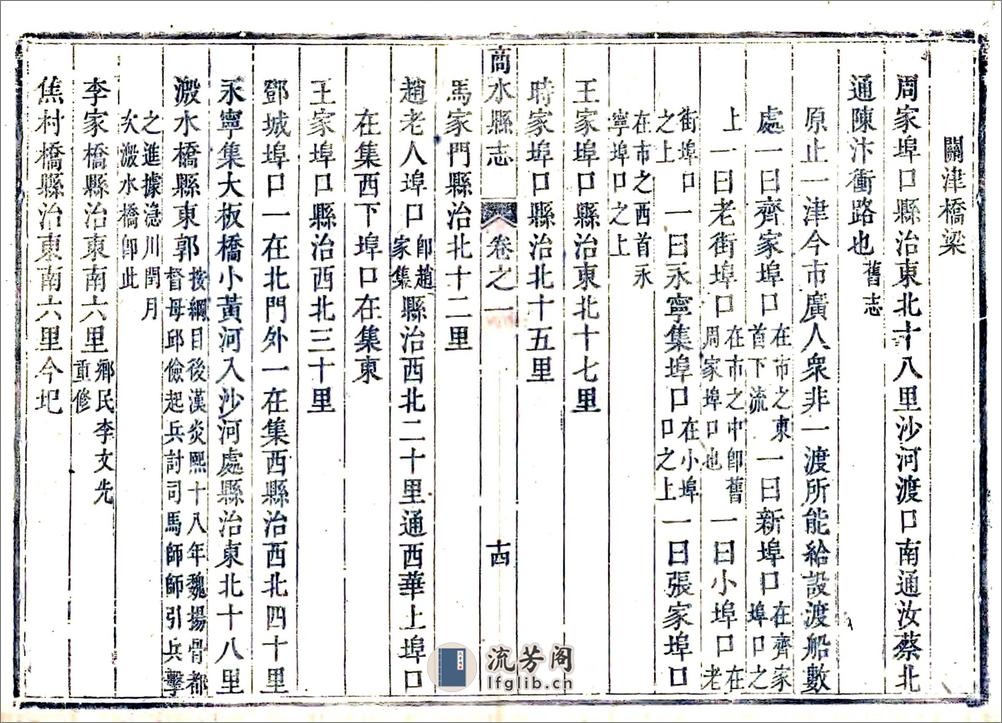 關津橋梁
周家埠口縣治東北十八里沙河渡口南通汝蔡北
通陳汴衝路也舊志
原止一津今市廣人衆非一渡所能給設渡船數
處一曰齊家埠口在市之東首下流一曰新埠口在齊家埠口之
上一曰老街埠口在市之中卽舊周家埠口也一曰小埠口在老
街埠口之上一曰永寧集埠口在小埠口之上一曰張家埠口
在市之西首永寧埠口之上
王家埠口縣治東北十七里
時家埠口縣治北十五里
商水縣志 卷之一 十四
馬家門縣治北十二里
趙老人埠口卽趙家集縣治西北二十里通西華上埠口
在集西下埠口在集東
王家埠口縣治西北三十里
鄧城埠口一在北門外一在集西縣治西北四十里
永寧集大板橋小黃河入沙河處縣治東北十八里
溵水橋縣東郭按綱目後漢炎熙十八年魏揚骨都督母邱儉起兵討司馬師師引兵擊
之進據急川閏月次溵水橋卽此
李家橋縣治東南六里鄉民李文先重修
焦村橋縣治東南六里今圮
流芳阁
lfglib.cn